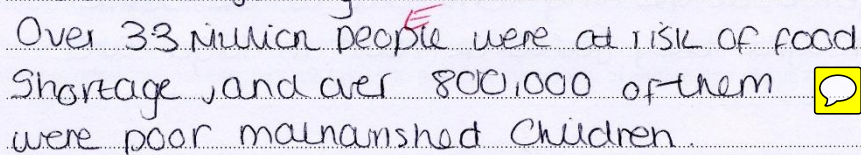 Over 33 Million people were at risk of food
Shortage, and over 800,000 of them
were poor malnamshed Children.